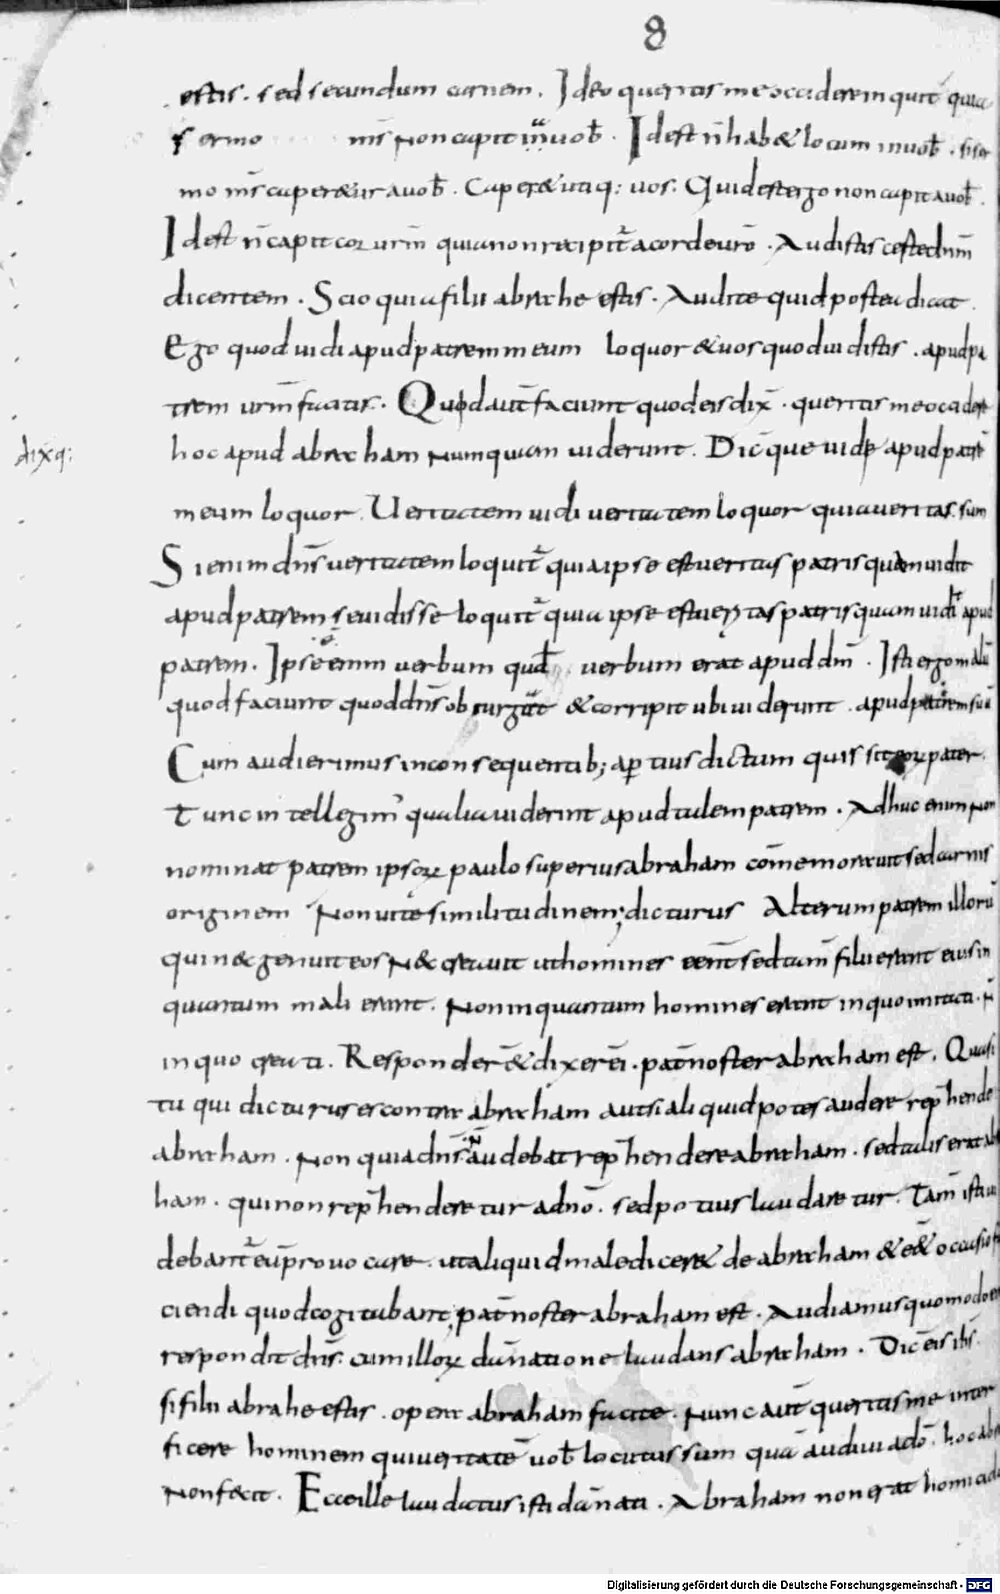 8
estis. sed secundum carnem. Ideo queritis me occidere inquit quia
sermo m̄s non capit in uob̄. Idest n̄ hab& locum in uob̄. si ser
mo m̄s caper&ur a uob̄. Caper& utiq: uos. Quid est ergo non capit a uob̄.
Idest n̄ capit cor urm̄ quia non recipit̄ a corde urō. Audistis cęste dnm̄
dicentem. Scio quia filii abrahe estis. Audite quid postea dicat.
Ego quod uidi apud patrem meum loquor & uos quod uidistis. apud pa
trem urm̄ facitis. Quod aut̄ faciunt quod eis dix̄. queritis me occidere
dixq:
hoc apud abraham numquam uiderunt. Dic̄ que uidi apud patrē
meum loquor. Ueritatem uidi ueritatem loquor quia ueritas sum
Si enim dn̄s ueritatem loquit̄ quia ipse est ueritas patris quam uidit
apud patrem se uidisse loquit̄ quia ipse est ueritas patris quam uidit apud
patrem. Ipse enim uerbum quod uerbum erat apud dm̄. Isti ergo mala
quod faciunt quod dn̄s obiurgat & corripit ubi uiderunt. apud patrem suū
Cum audierimus in consequentib; apertius dictum quis sit eoꝝ pater.
Tunc intellegim' qualia uiderint apud talem patrem. Adhuc enim non
nominat patrem ipsoꝝ paulo superius abraham com̄emorauit sed carnis
originem Non uite similitudinem; dicturus Alterum patrem illorū
qui n& genuit eos n& creauit ut homines eent̄ sed tam̄ filii erant eius in
quantum mali erant. Non inquantum homines erant in quo imitati. N̄
in quo creati. Responder̄ & dixer̄ ei. pat̄ noster abraham est. Quasi
tu qui dicturus es contra abraham aut si aliquid potes audere rep̄hende
abraham. Non quia dn̄s n̄ audebat rep̄hendere abraham. sed talis erat abra
ham. qui non rep̄henderetur a dnō. sed potius laudaretur. Tam̄ isti ui
debant̄ eū prouocare. ut aliquid maledicer& de abraham & e& occasio fa
ciendi quod cogitabant, pat̄ noster abraham est. Audiamus quomodo eis
respondit dn̄s. cum illoꝝ dānatione laudans abraham. Dic̄ eis ih̄s.
si filii abrahe estis. opera abraham facite. Nunc aut̄ queritis me inter
ficere hominem qui ueritatē uob̄ locutus sum quā audiui a dō. hoc abra
non fecit. Ecce ille laudatus isti dānati. Abraham non erat homicida
Digitalisierung gefördert durch die Deutsche Forschungsgemeinschaft - DFG